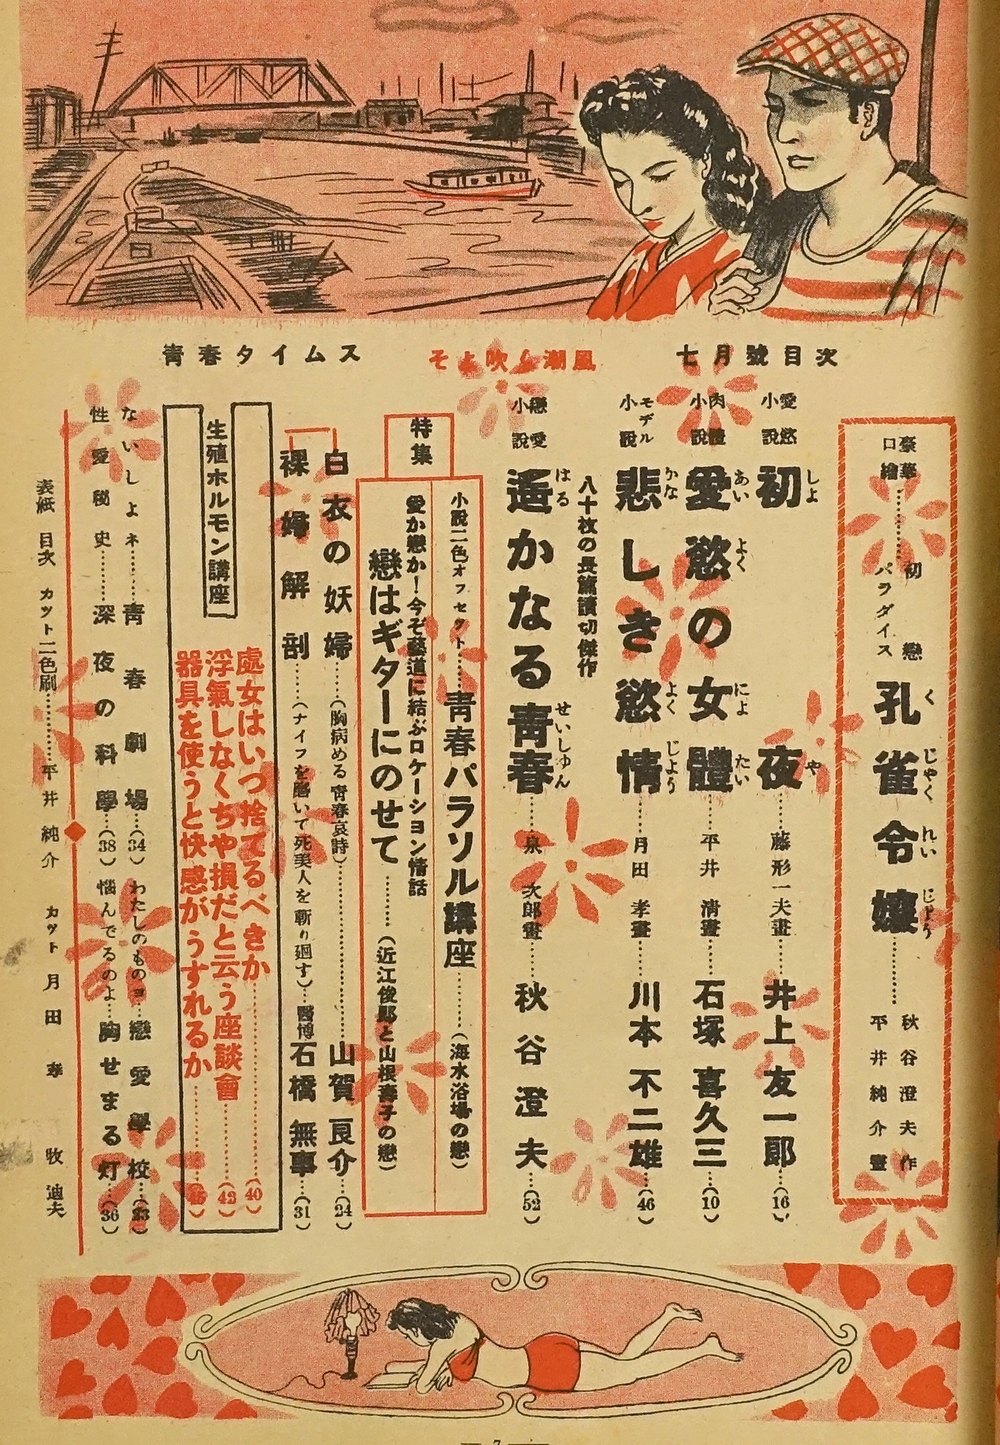 青春タイムス
そよ吹く潮風
七月號目次
豪華口繪………初戀パラダイス
孔雀令孃………
くじゃくれいじょう
秋谷澄夫作
平井純介畫
愛慾小説
初夜……藤形一夫畫……井上友一郎…(16)
しよや
肉體小説
愛慾の女體……平井 淸畫……石塚喜久三…(10)
あいよくによたい
モデル小説
悲しき慾情……月田 孝畫……川本不二雄…(46)
かなよくじよう
八十枚の長篇讀切傑作
戀愛小説
遥かなる靑春……泉 次郎畫……秋谷澄夫…(52)
はるせいしゅん
特集
小説二色オフセット……靑春パラソル講座……(海水浴場の戀)
愛か戀か!今ぞ藝道に結ぶロケーション情話
戀はギターにのせて……(近江俊郎と山根壽子の戀)
白衣の妖婦……(胸病める靑春哀詩)……山賀良介…(24)
裸婦解剖……(ナイフを磨いて死美人を斬り廻す)…醫博石橋無事…(31)
生殖ホルモン講座
處女はいつ捨てるべきか……(40)
浮氣しなくちゃ損だと云う座談會……(42)
器具を使うと快感がうすれるか……
ないしよよネ……靑春劇場…(34)
わたしのものヨ…戀愛學校…(33)
性愛秘史……深夜の科學…(38)
惱んでるのよ…胸せまる灯…(36)
表紙 目次 カット二色刷………平井純介
カット 月田 孝 牧 迪夫
— 7 —